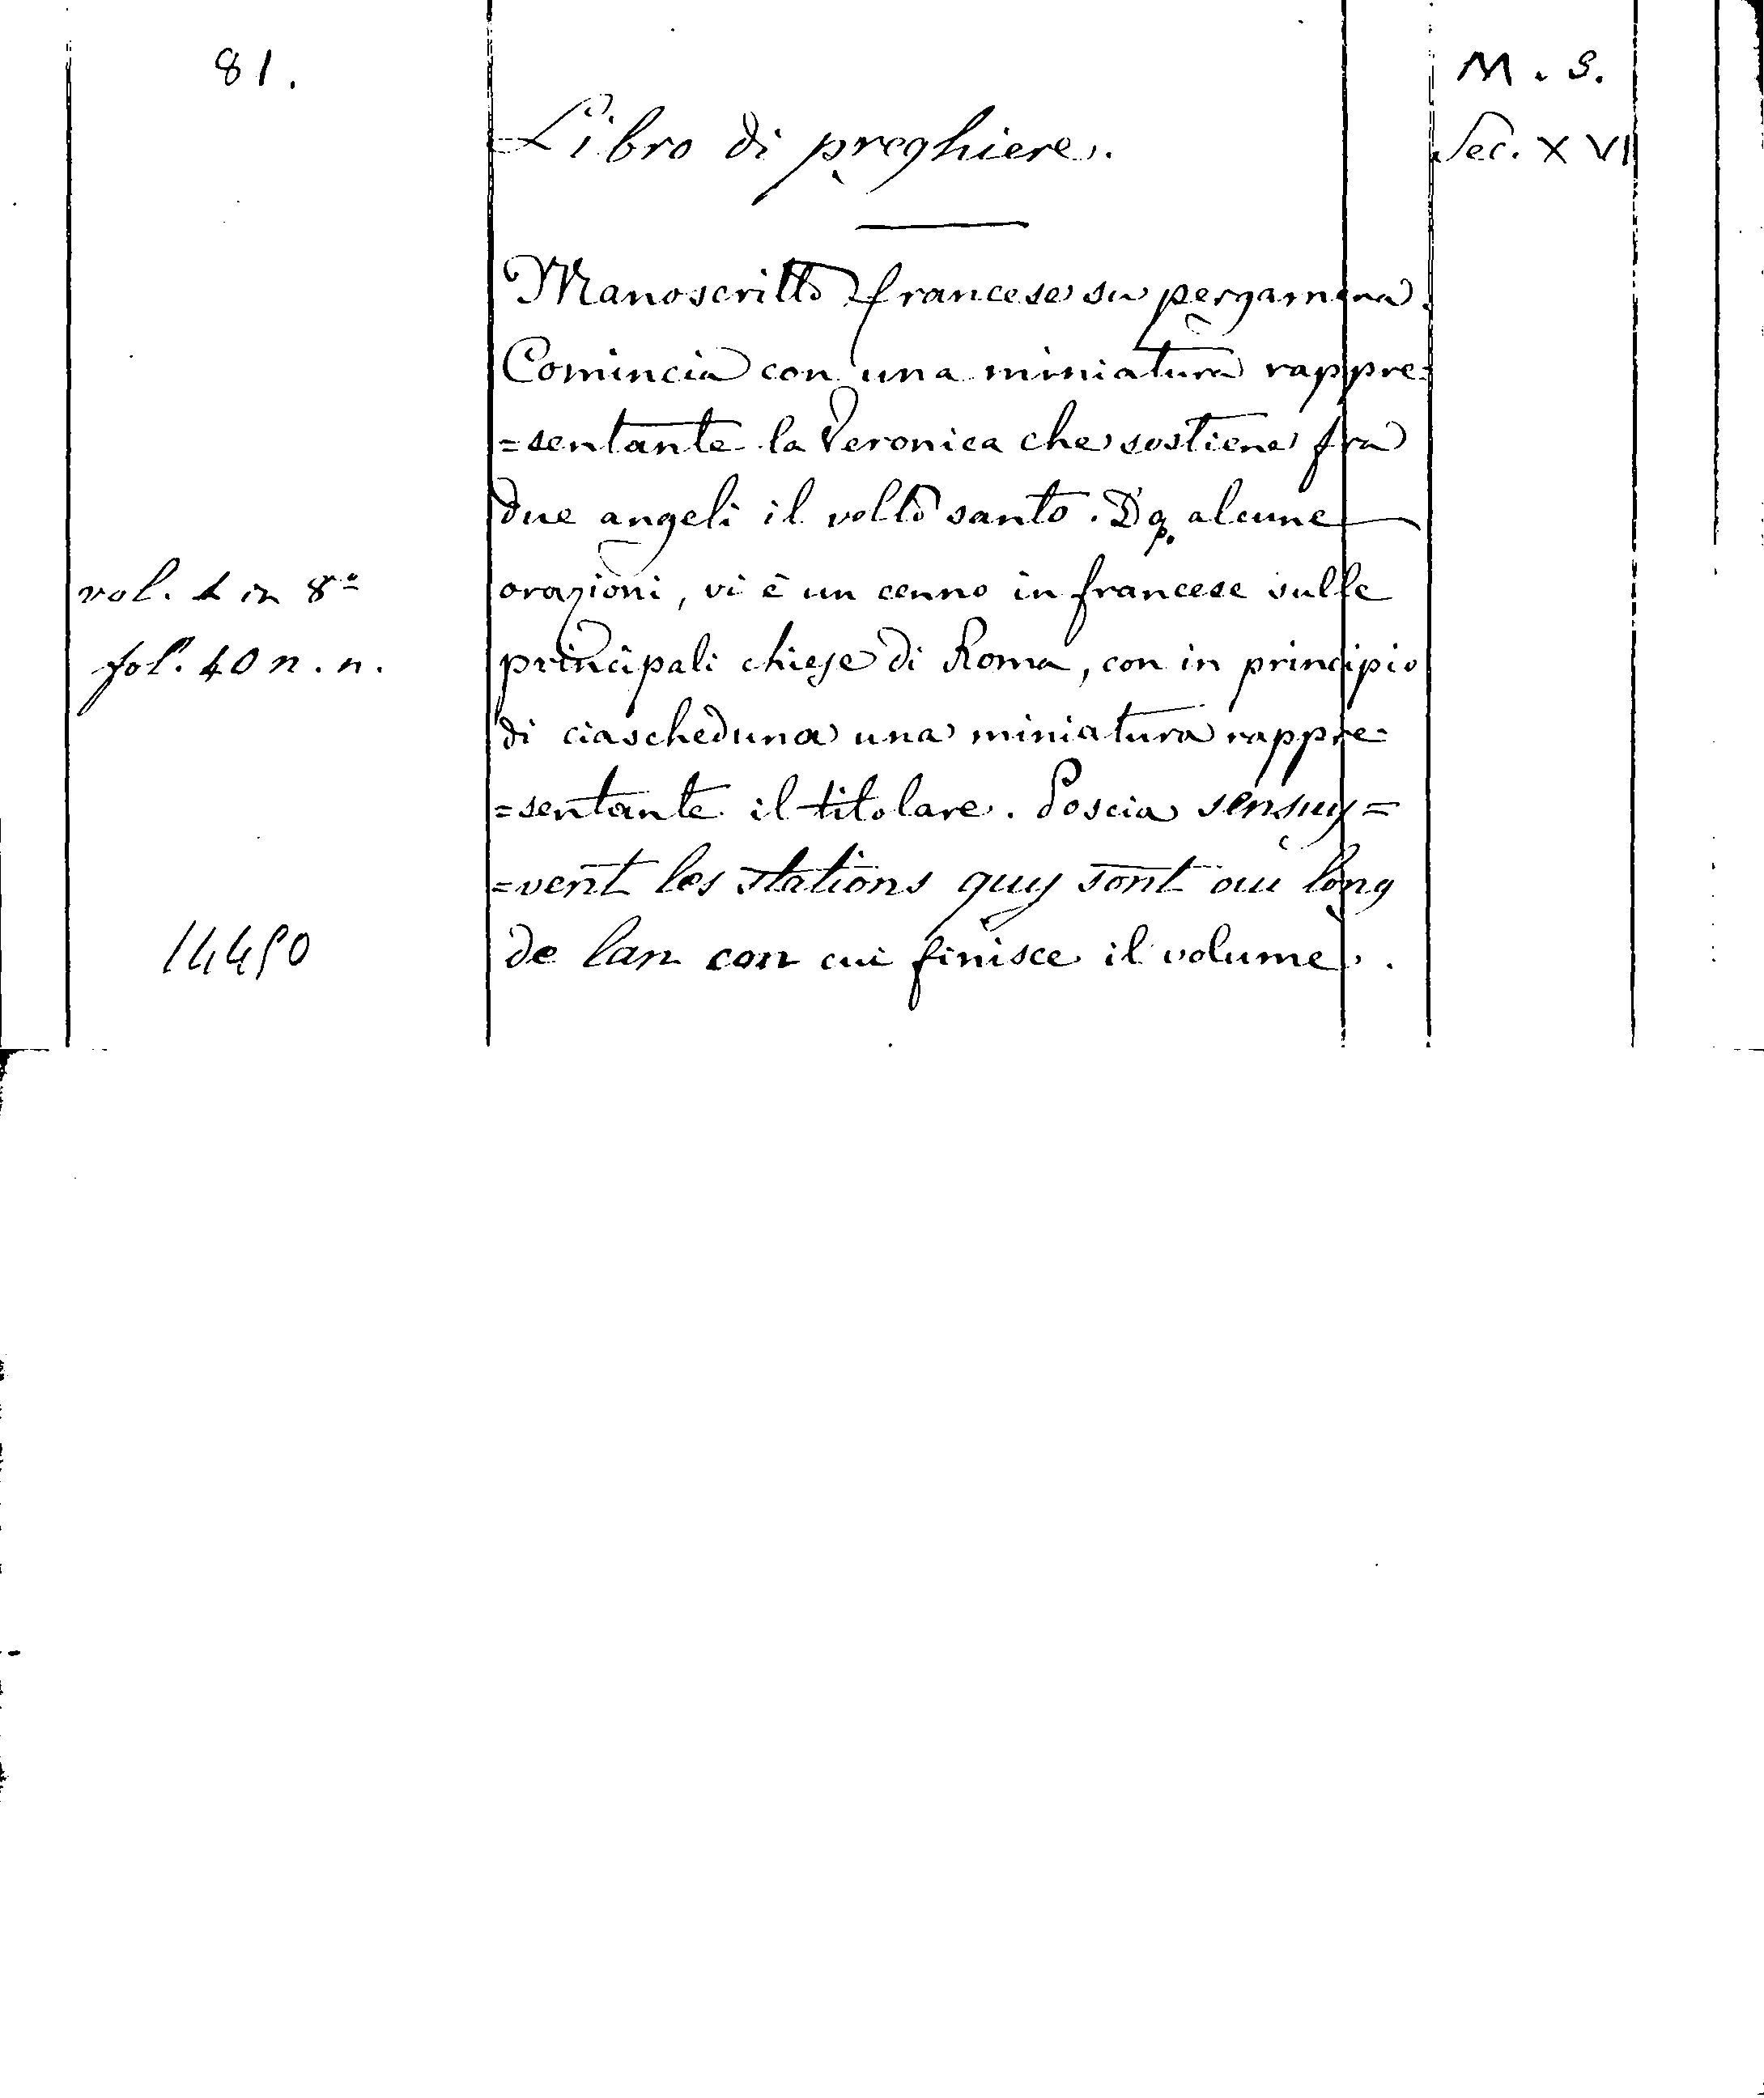 81.
M. S.
Libro di preghiere.
Sec. XVI
Manoscritto francese su pergamena.
Comincia con una miniatura rappre=
=sentante la Veronica che sostiene fra
due angeli il volto santo. Dp. alcune
vol. 1 in 8º
orazioni, vi è un cenno in francese sulle
fol. 40 n. n.
principali chiese di Roma, con in principio
di ciascheduna una miniatura rappre=
=sentante il titolare. Poscia sensuy=
=vent les stations quy sont au long
14450
de lan con cui finisce il volume.